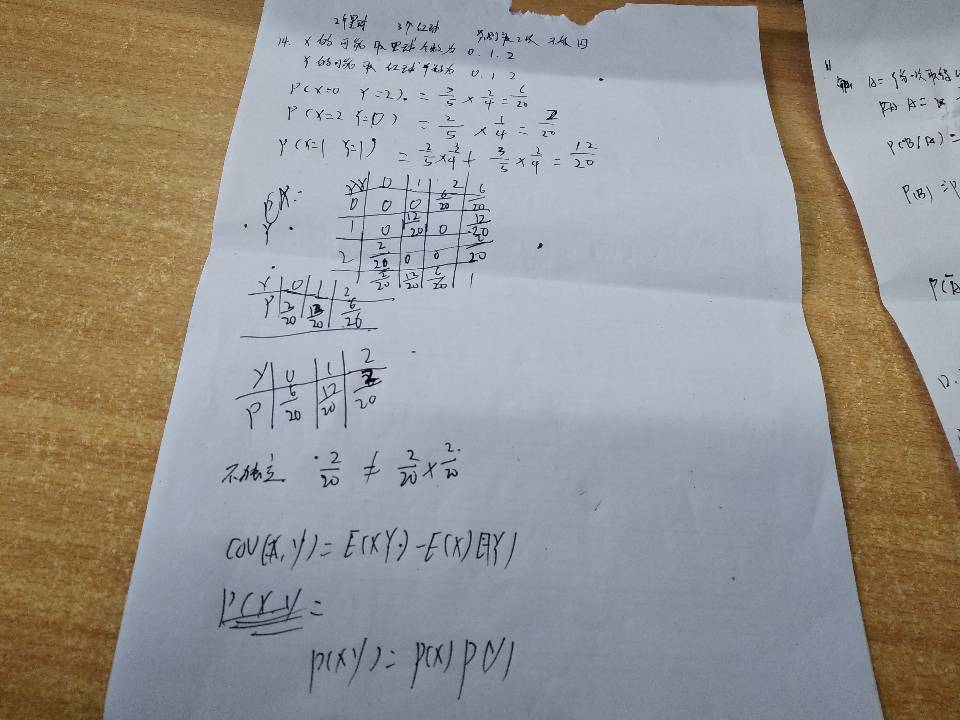 2个黑球 3个红球 分别取2次 不放回
14. X的可能取黑球个数为 0.1.2
Y的可能取红球个数为 0.1.2
P(X=0 Y=2) = 3/5 × 2/4 = 6/20
P(X=2 Y=0) = 2/5 × 1/4 = 2/20
P(X=1 Y=1) = 2/5 × 3/4 + 3/5 × 2/4 = 12/20
0 1 2 6/20
0 0 0 6/20
1 0 12/20 0 12/20
2 2/20 0 0 2/20
2/20 12/20 6/20 1
Y 0 1 2
P 2/20 12/20 6/20
Y 0 1 2
P 6/20 12/20 2/20
不独立 2/20 ≠ 2/20 × 2/20
COV(X,Y) = E(XY) - E(X)E(Y)
P(X Y =
P(XY) = P(X) P(Y)
11
A=
P(B/A) =
P(B) = P